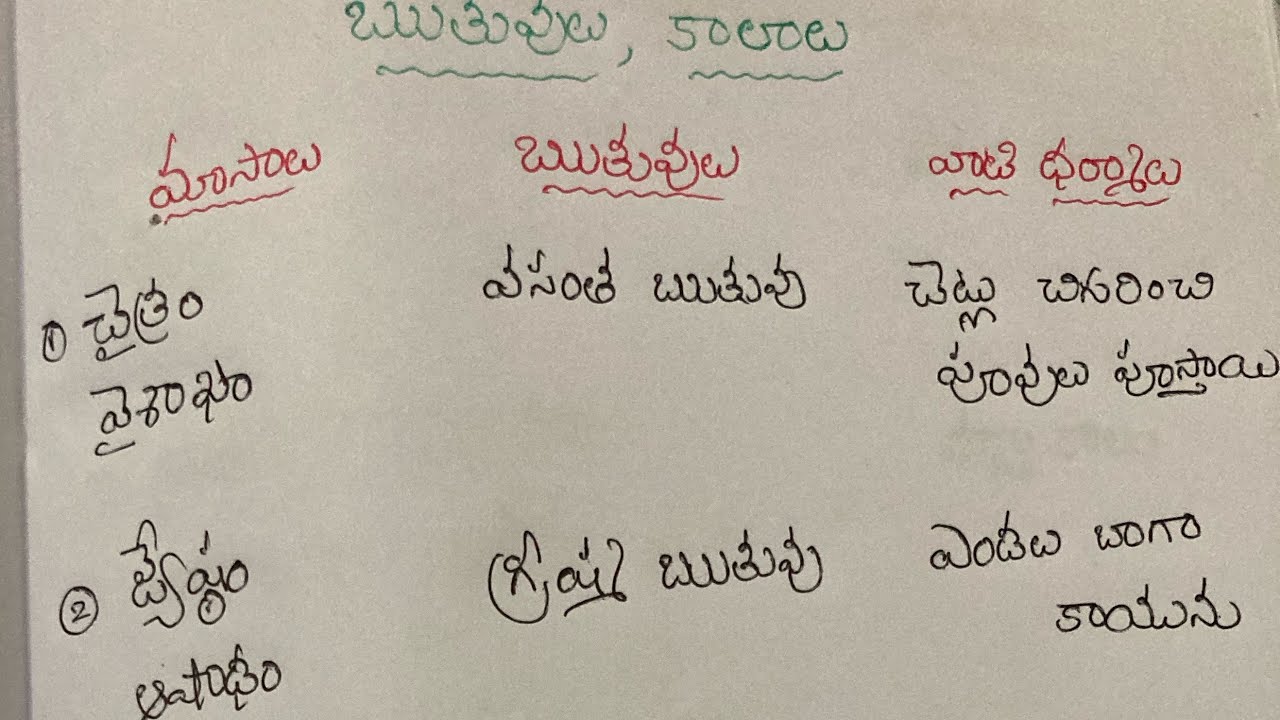 ఋతువులు, కాలాలు
మాసాలు ఋతువులు వాటి ధర్మాలు
① చైత్రం వసంత ఋతువు చెట్లు చిగురించి
వైశాఖం పూవులు పూస్తాయి
② జ్యేష్ఠం గ్రీష్మ ఋతువు ఎండలు బాగా
కాయును
ఆషాఢం